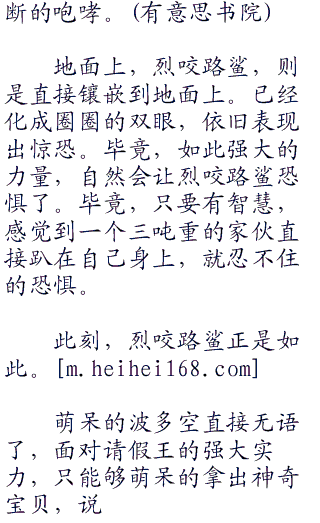 断的咆哮。(有意思书院)
地面上，烈咬路鲨，则
是直接镶嵌到地面上。已经
化成圈圈的双眼，依旧表现
出惊恐。毕竟，如此强大的
力量，自然会让烈咬路鲨恐
惧了。毕竟，只要有智慧，
感觉到一个三吨重的家伙直
接趴在自己身上，就忍不住
的恐惧。
此刻，烈咬路鲨正是如
此。[m.heihei168.com]
萌呆的波多空直接无语
了，面对请假王的强大实
力，只能够萌呆的拿出神奇
宝贝，说